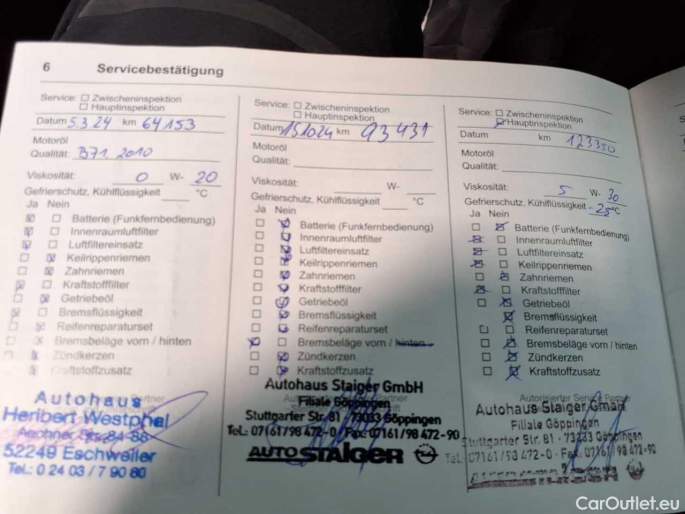 6 Servicebestätigung
Service: Zwischeninspektion
Hauptinspektion
Datum 5.3.24 km 64153
Motoröl
Qualität: B71 2010
Viskosität: 0 W- 20
Gefrierschutz, Kühlflüssigkeit °C
Ja Nein
Batterie (Funkfernbedienung)
Innenraumluftfilter
Luftfiltereinsatz
Keilrippenriemen
Zahnriemen
Kraftstofffilter
Getriebeöl
Bremsflüssigkeit
Reifenreparaturset
Bremsbeläge vorn / hinten
Zündkerzen
Kraftstoffzusatz
Autohaus
Heribert Westphal
Aachner Str. 84-88
52249 Eschweiler
Tel.: 0 24 03 / 7 90 80
Service: Zwischeninspektion
Hauptinspektion
Datum 151024 km 93431
Motoröl
Qualität:
Viskosität: W-
Gefrierschutz, Kühlflüssigkeit °C
Ja Nein
Batterie (Funkfernbedienung)
Innenraumluftfilter
Luftfiltereinsatz
Keilrippenriemen
Zahnriemen
Kraftstofffilter
Getriebeöl
Bremsflüssigkeit
Reifenreparaturset
Bremsbeläge vorn / hinten
Zündkerzen
Kraftstoffzusatz
Autohaus Staiger GmbH
Filiale Göppingen
Stuttgarter Str. 81 · 73033 Göppingen
Tel.: 07161/98 472-0 · Fax: 07161/98 472-90
AUTO STAIGER
Service: Zwischeninspektion
Hauptinspektion
Datum km 123350
Motoröl
Qualität:
Viskosität: 5 W- 30
Gefrierschutz, Kühlflüssigkeit -25°C
Ja Nein
Batterie (Funkfernbedienung)
Innenraumluftfilter
Luftfiltereinsatz
Keilrippenriemen
Zahnriemen
Kraftstofffilter
Getriebeöl
Bremsflüssigkeit
Reifenreparaturset
Bremsbeläge vorn / hinten
Zündkerzen
Kraftstoffzusatz
Autorisierter Service Partner
Autohaus Staiger GmbH
Filiale Göppingen
Stuttgarter Str. 81 · 73033 Göppingen
Tel.: 07161/98 472-0 · Fax: 07161/98 472-90
CarOutlet.eu